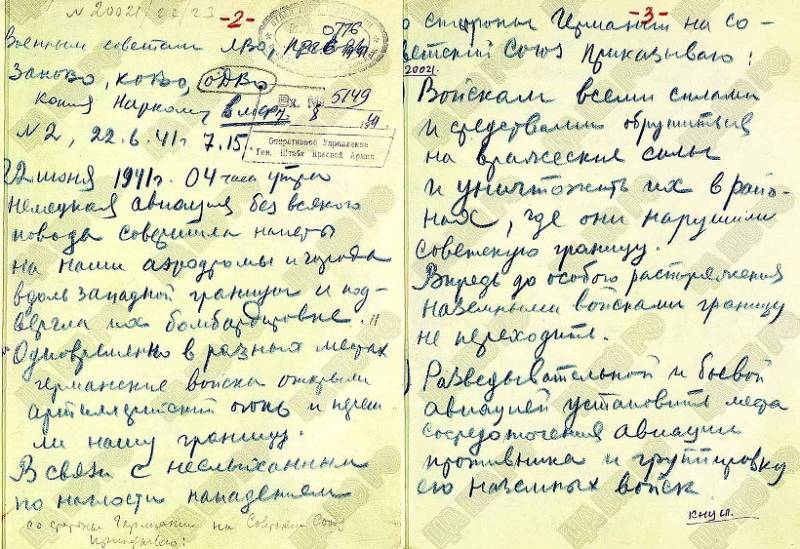 N 20021/02/23
-2-
0776
Военным советам ЛВО, ПрибОВО,
ЗапОВО, КОВО, ОДВО,
копия Наркому в.м.ф.
Вх. № 5149
8
N 2, 22.6.41г. 7.15
Оперативное Управление
Ген. Штаба Красной Армии
22 июня 1941г. 04 часа утра
немецкая авиация без всякого
повода совершила налеты
на наши аэродромы и города
вдоль западной границы и под-
вергла их бомбардировке.
Одновременно в разных местах
германские войска открыли
артиллерийский огонь и переш-
ли нашу границу.
В связи с неслыханным
по наглости нападением
со стороны Германии на Советский Союз
приказываю:
-3-
со стороны Германии на Со-
ветский Союз приказываю:
20021
Войскам всеми силами
и средствами обрушиться
на вражеские силы
и уничтожить их в райо-
нах, где они нарушили
советскую границу.
Впредь до особого распоряжения
наземными войсками границу
не переходить.
Разведывательной и боевой
авиацией установить места
сосредоточения авиации
противника и группировку
его наземных войск